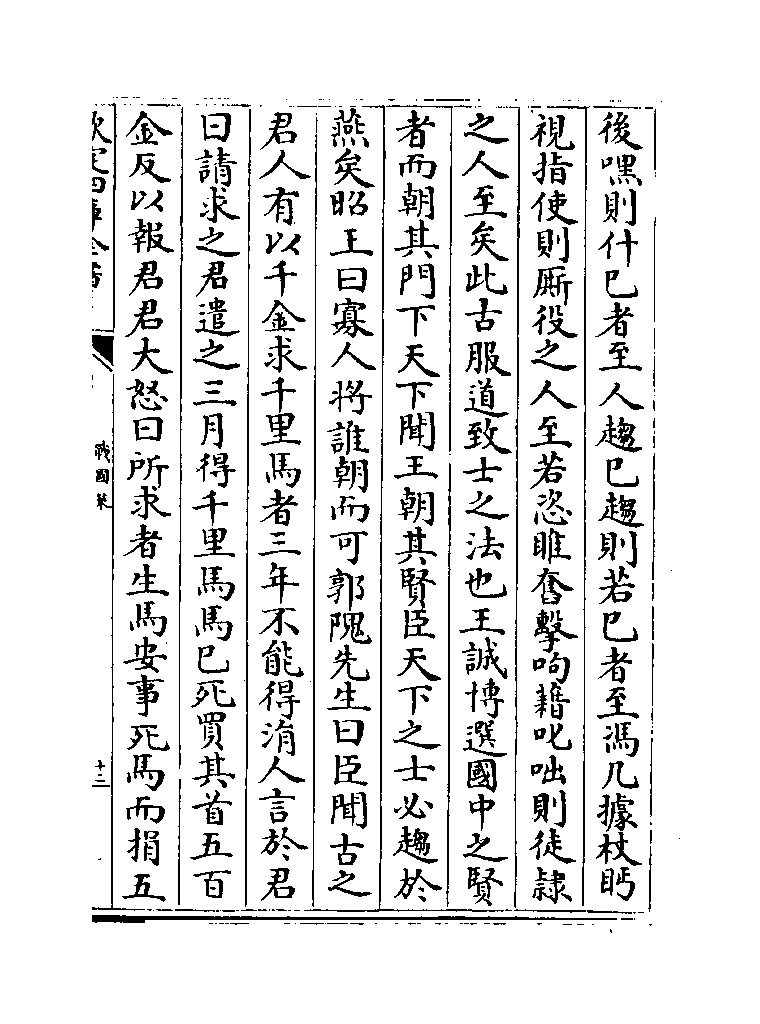 後嘿則什巳者至人趨巳趨則若巳者至馮几據杖眄
視指使則厮役之人至若恣睢奮擊呴藉叱咄則徒隷
之人至矣此古服道致士之法也王誠博選國中之賢
者而朝其門下天下聞王朝其賢臣天下之士必趨於
燕矣昭王曰寡人将誰朝而可郭隗先生曰臣聞古之
君人有以千金求千里馬者三年不能得涓人言於君
曰請求之君遣之三月得千里馬馬巳死買其首五百
金反以報君君大怒曰所求者生馬安事死馬而捐五
欽定四庫全書
戰國策
十二